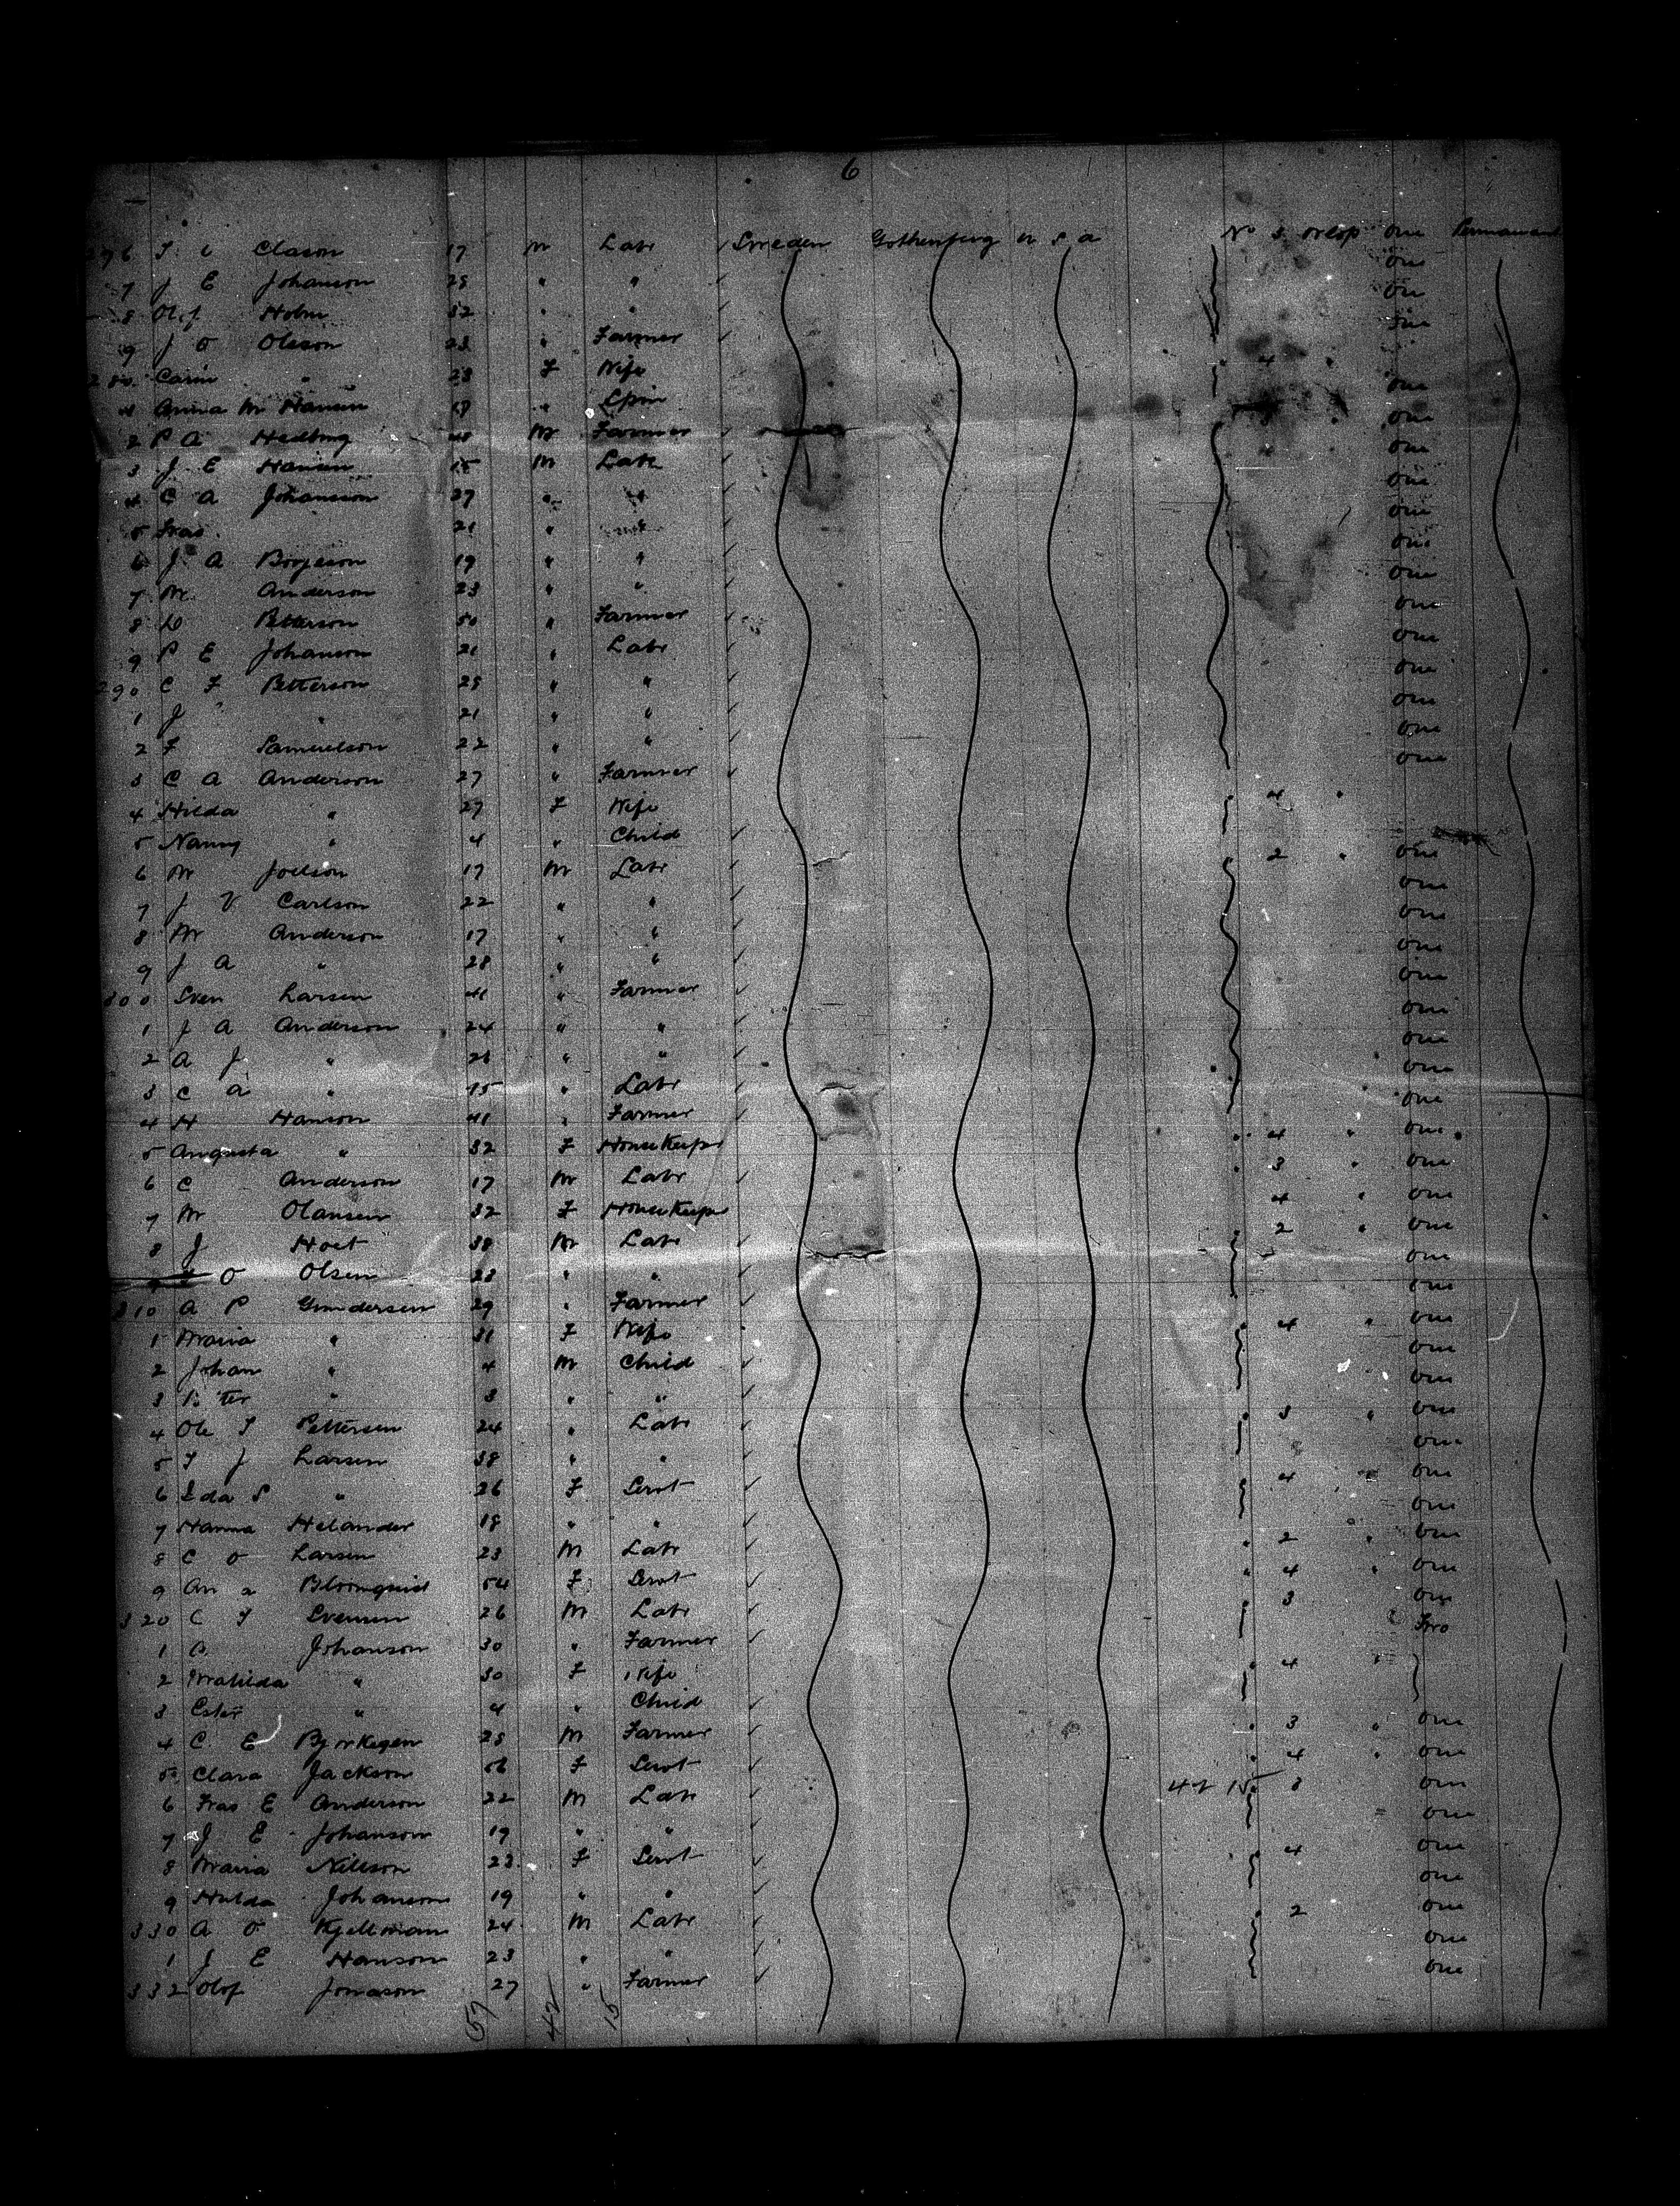 6
296 J C Clason 17 m Labr Sweden Gothenburg U S A No 3 Orlop One Permanent
7 J E Johanson 25 " " One
8 Olof Holm 32 " " One
9 J O Oleson 23 " Farmer
280 Carin " 23 F Wife 4 "
Anna M Hansen " Spin One
2 P A Hedberg M Farmer One
3 J E Hansen 15 M Labr One
4 C A Johansson 27 " " One
5 Fras 21 " " One
6 J A Borjeson 19 " " One
7 M Anderson 23 " " One
8 Petterson 50 " Farmer One
9 P E Johanson 21 " Labr One
290 C F Petterson 25 " " One
1 J " 21 " " One
2 F Samuelson 22 " " One
3 C A Anderson 27 " Farmer One
4 Hilda " 27 F Wife 4 "
5 Nanny " 4 " Child
6 M Joelson 17 M Labr 2 " One
7 J V Carlson 22 " " One
8 M Anderson 17 " " One
9 J A " 28 " " One
300 Sven Larsen 41 " Farmer One
1 J A Anderson 24 " " One
2 A J " 21 " " One
3 C A " 15 " Labr One
4 H Hanson 41 " Farmer One
5 Augusta " 32 F HouseKeepr 4 " One
6 C Anderson 17 M Labr 3 " One
7 M Olansen 32 F HouseKeepr 4 " One
8 J Hoet 38 M Labr 2 " One
9 O Olsen 23 " " One
310 A P Gundersen 29 " Farmer One
1 Maria " 31 F Wife 4 " One
2 Johan " 4 M Child One
3 Peter " 3 " " One
4 Ole T Pettersen 24 " Labr 3 " One
5 T J Larsen 38 " " One
6 Ida S " 26 F Servt 4 " One
7 Hanna Helander 18 " " One
8 C O Larsen 23 M Labr 2 " One
9 An a Bloomquist 54 F Servt 4 " One
320 C Svensen 26 M Labr 3 One
1 A Johanson 30 " Farmer Two
2 Mathilda " 30 F Wife 4 "
3 Ester " 4 " Child
4 C E Bjorkegen 25 M Farmer 3 " One
5 Clara Jackson 56 F Servt 4 " One
6 Fras E Anderson 22 M Labr 42 15 3 One
7 J E Johanson 19 " " One
8 Maria Nilsson 23 F Servt 4 One
9 Hulda Johanson 19 " " One
330 A O Kjellman 24 M Labr 2 One
1 J E Hanson 23 " " One
332 Olof Jonason 27 " Farmer One
57 42 15